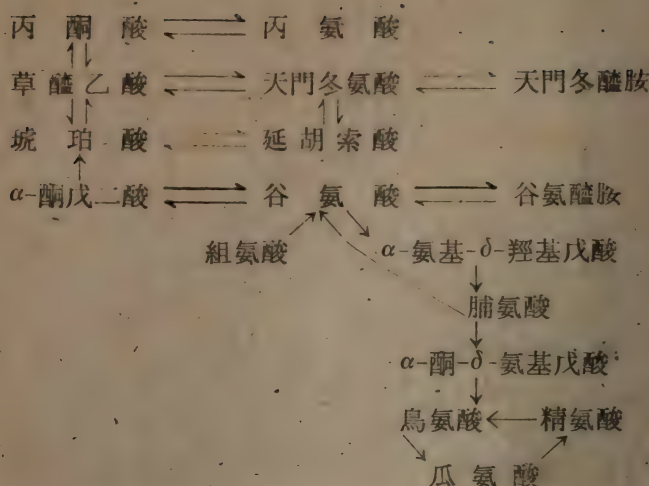 丙酮酸 ⇌ 丙氨酸
草醯乙酸 ⇌ 天門冬氨酸 ⇌ 天門冬醯胺
琥珀酸 ⇌ 延胡索酸
α-酮戊二酸 ⇌ 谷氨酸 ⇌ 谷氨醯胺
組氨酸 α-氨基-δ-羥基戊酸
脯氨酸
α-酮-δ-氨基戊酸
鳥氨酸 ← 精氨酸
瓜氨酸